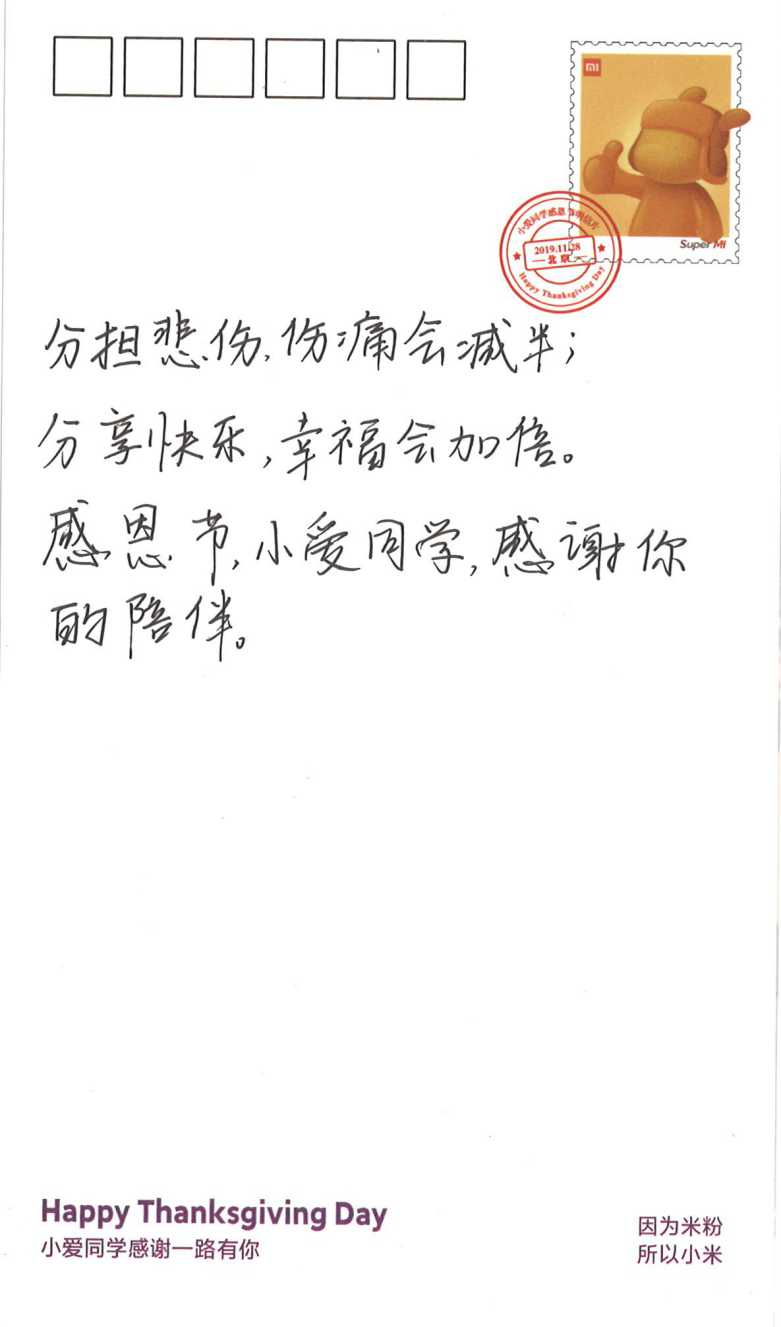 MI
Super Mi
小爱同学感恩节明信片
2019.11.28
北京
Happy Thanksgiving Day
分担悲伤,伤痛会减半;
分享快乐,幸福会加倍。
感恩节,小爱同学,感谢你
的陪伴。
Happy Thanksgiving Day
小爱同学感谢一路有你
因为米粉
所以小米